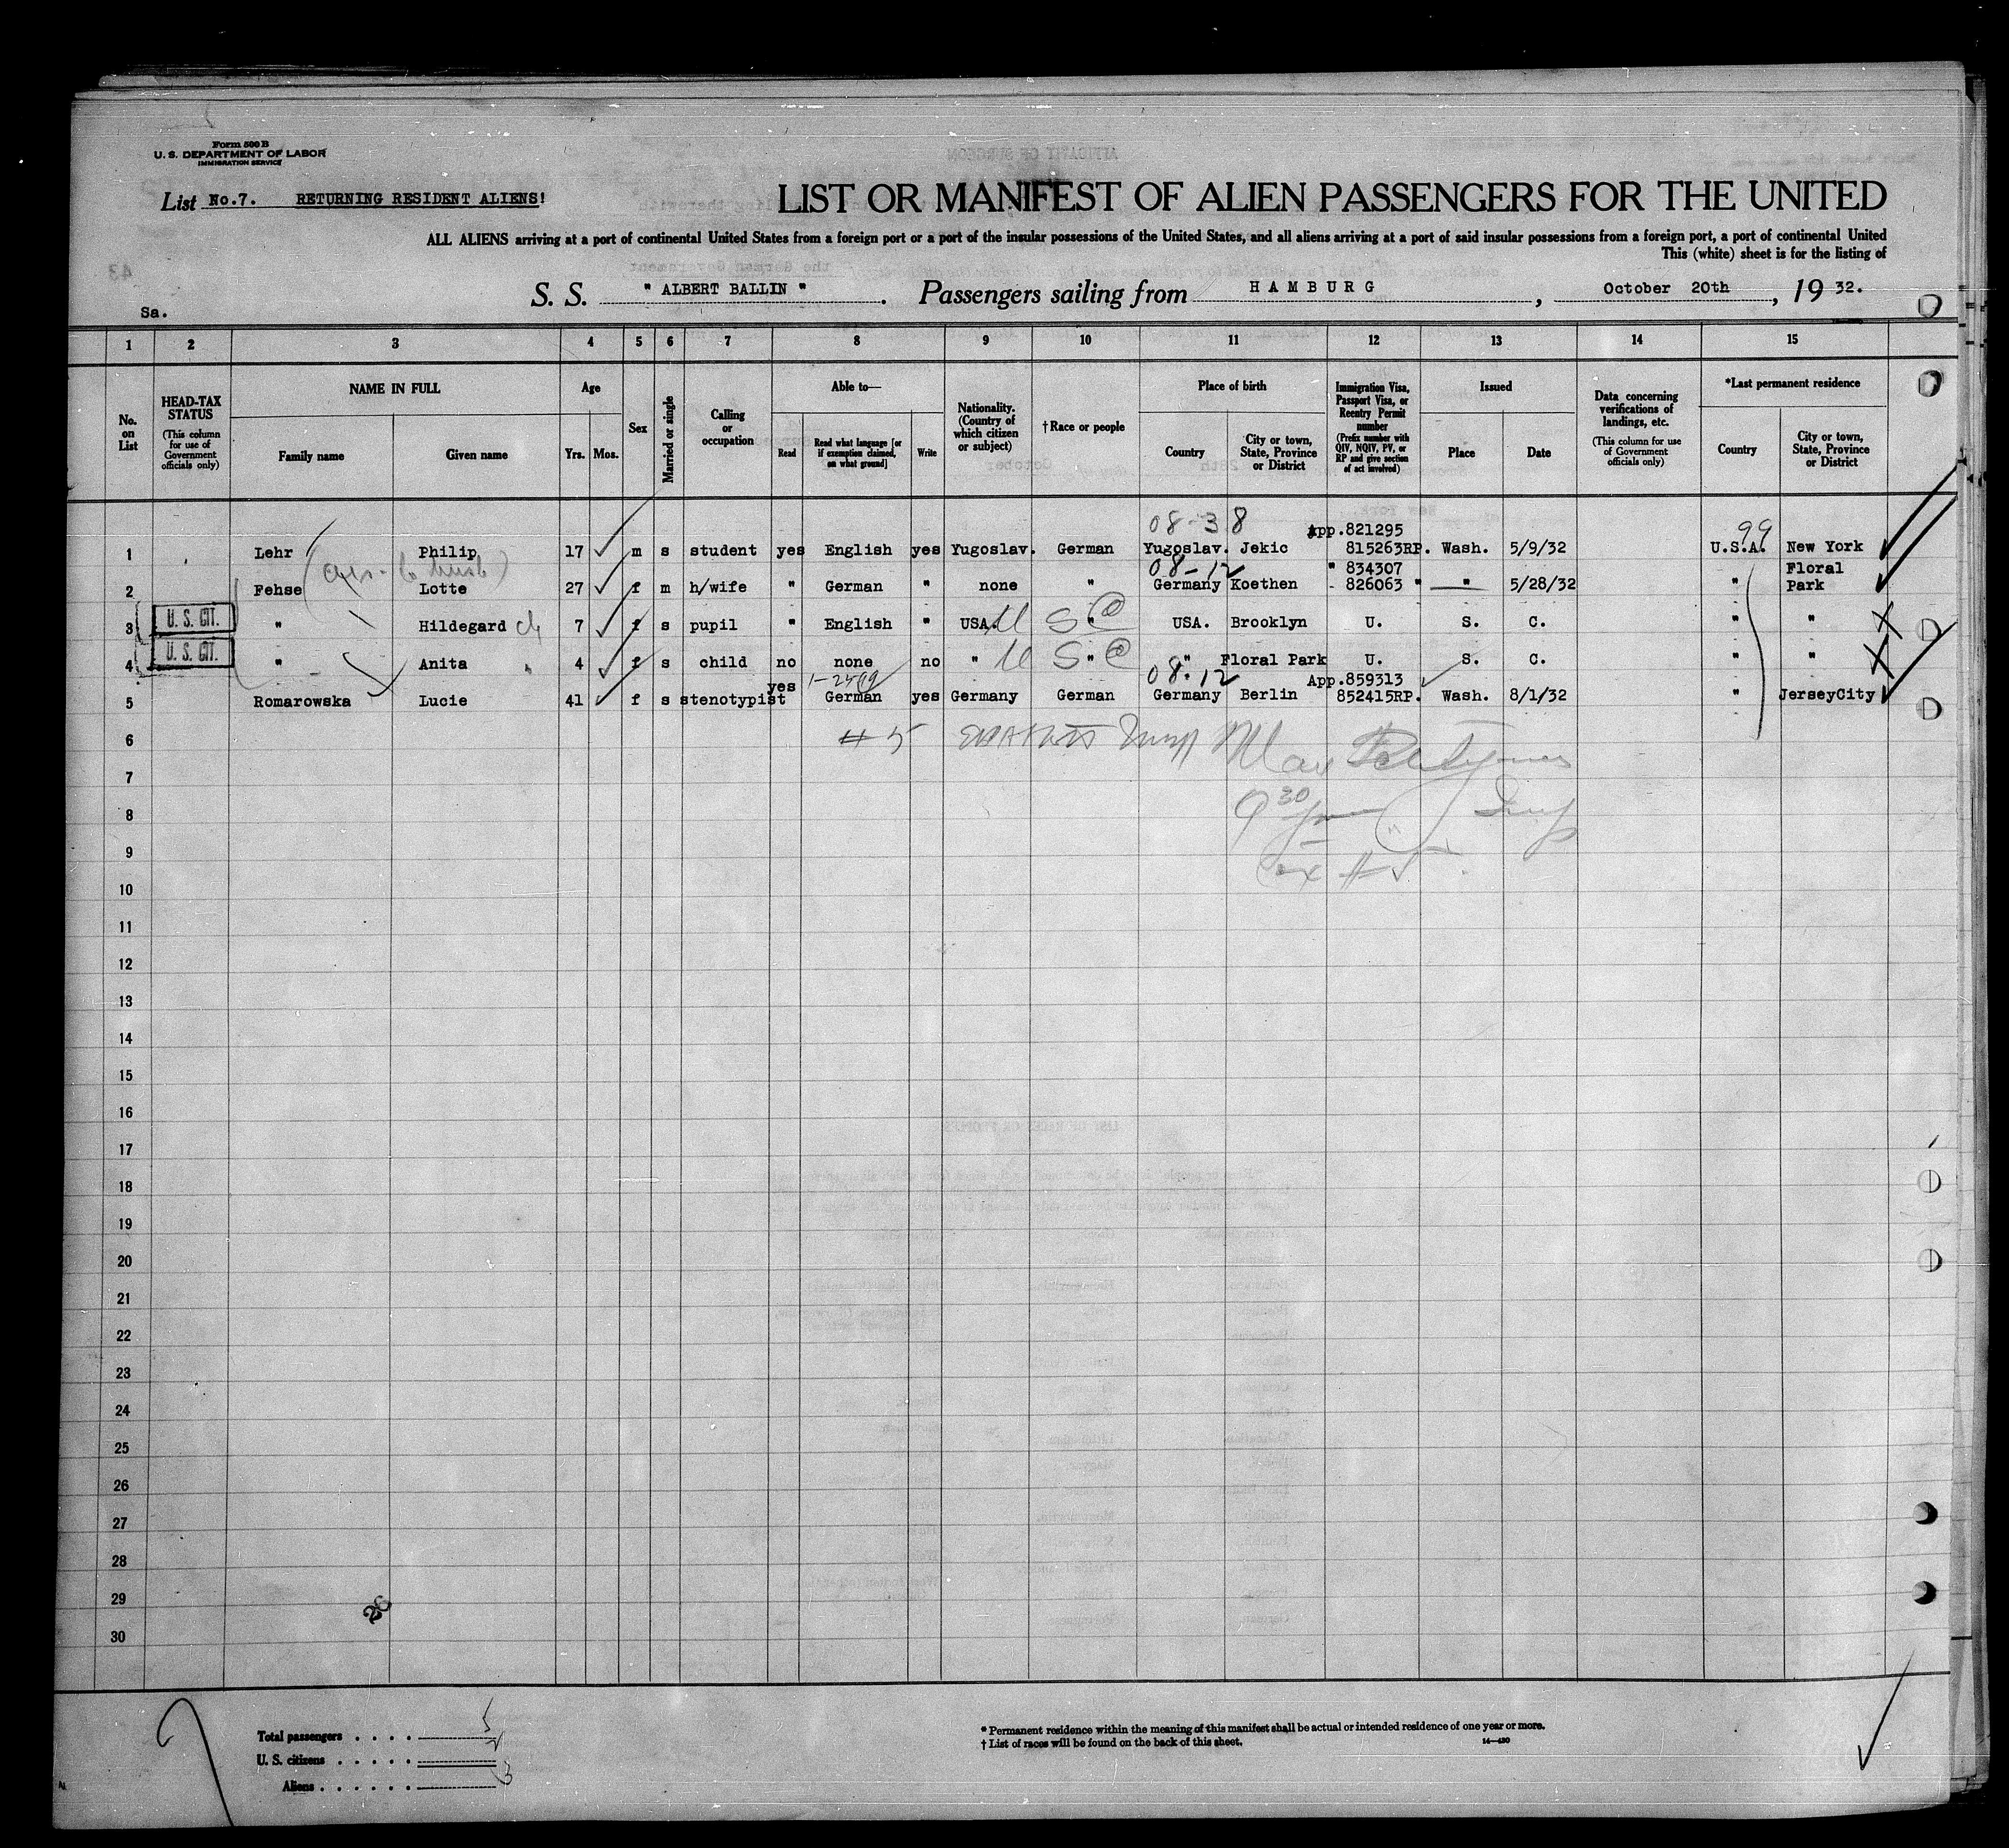 Form 500 B
U. S. DEPARTMENT OF LABOR
IMMIGRATION SERVICE
List No.7. RETURNING RESIDENT ALIENS!
LIST OR MANIFEST OF ALIEN PASSENGERS FOR THE UNITED
ALL ALIENS arriving at a port of continental United States from a foreign port or a port of the insular possessions of the United States, and all aliens arriving at a port of said insular possessions from a foreign port, a port of continental United
This (white) sheet is for the listing of
S. S. " ALBERT BALLIN ". Passengers sailing from HAMBURG, October 20th, 1932.
Sa.
1 2 3 4 5 6 7 8 9 10 11 12 13 14 15
No. on List
HEAD-TAX STATUS (This column for use of Government officials only)
NAME IN FULL
Family name Given name
Age
Yrs. Mos.
Sex
Married or single
Calling or occupation
Able to—
Read Read what language [or if exemption claimed, on what ground] Write
Nationality. (Country of which citizen or subject)
†Race or people
Place of birth
Country City or town, State, Province or District
Immigration Visa, Passport Visa, or Reentry Permit number (Prefix number with QIV, NQIV, PV, or RP and give section of act involved)
Issued
Place Date
Data concerning verifications of landings, etc. (This column for use of Government officials only)
*Last permanent residence
Country City or town, State, Province or District
08-38 App.821295 99
1 Lehr Philip 17 m s student yes English yes Yugoslav. German Yugoslav. Jekic 815263RP. Wash. 5/9/32 U.S.A. New York
08-12 " 834307 Floral
2 Fehse Lotte 27 f m h/wife " German " none " Germany Koethen 826063 " " 5/28/32 " Park
3 U. S. CIT. " Hildegard ch 7 f s pupil " English " USA. U S @ " USA. Brooklyn U. S. C. " "
4 U. S. CIT. " Anita 4 f s child no none no " U S @ " " Floral Park U. S. C. " "
yes 08-12 App.859313
5 Romarowska Lucie 41 f s stenotypist German yes Germany German Germany Berlin 852415RP. Wash. 8/1/32 " JerseyCity
6 # 5
7
8 9 30
9
10
11
12
13
14
15
16
17
18
19
20
21
22
23
24
25
26
27
28
29
30
Total passengers . . . . 5
U. S. citizens . . . . . 2
Aliens . . . . . . 3
* Permanent residence within the meaning of this manifest shall be actual or intended residence of one year or more.
† List of races will be found on the back of this sheet. 14—430